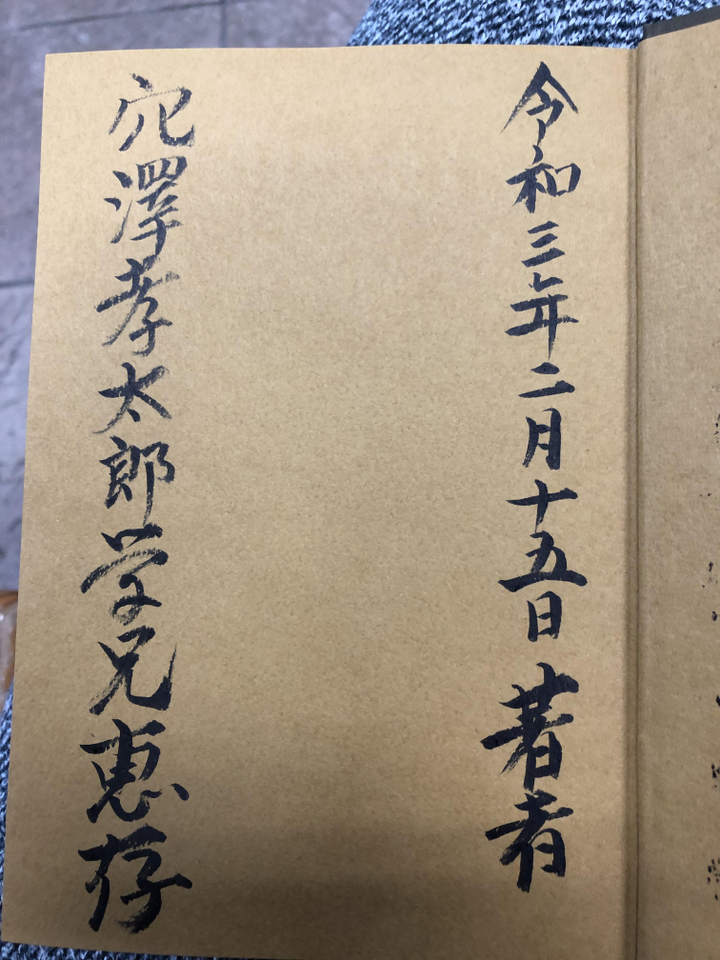 令和三年二月十五日 著者
穴澤孝太郎学兄恵存